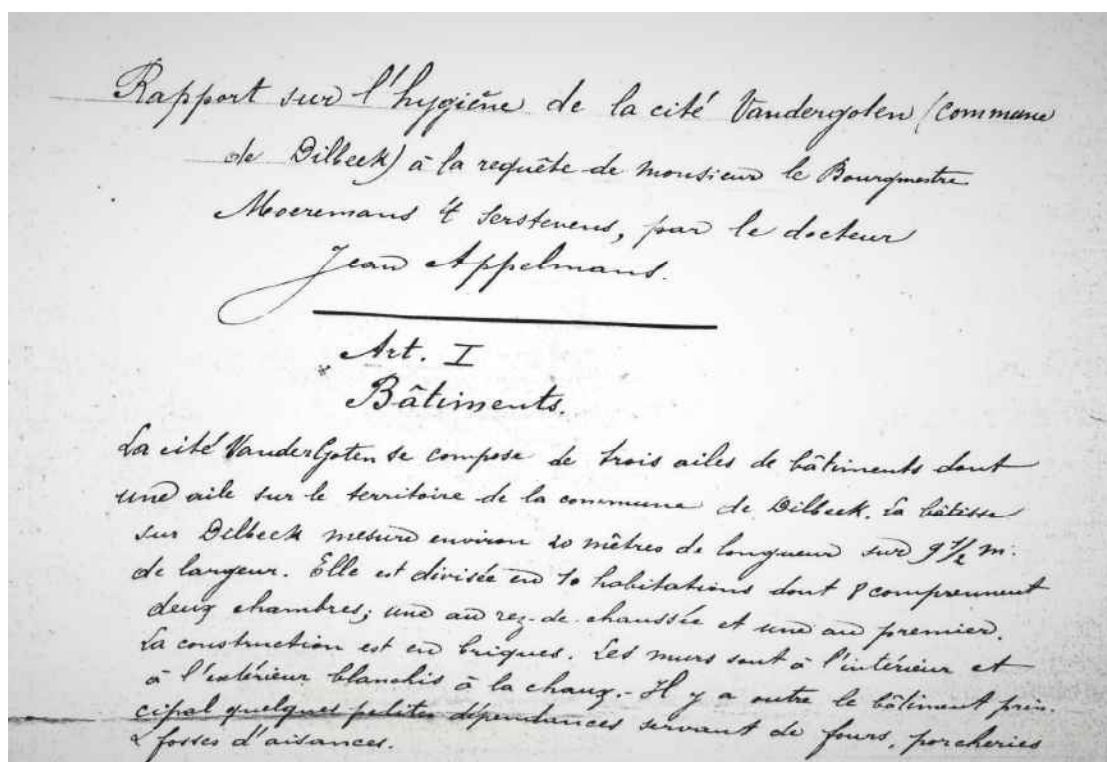 Rapport sur l'hygiène de la cité Vandergoten (commune
de Dilbeek) à la requête de monsieur le Bourgmestre
Moeremans 4 Serstevens, par le docteur
Jean Appelmans.
Art. I
Bâtiments.
La cité VanderGoten se compose de trois ailes de bâtiments dont
une aile sur le territoire de la commune de Dilbeek. La bâtisse
sur Dilbeek mesure environ 20 mêtres de longueur sur 9 1/2 m.
de largeur. Elle est divisée en 10 habitations dont 8 comprennent
deux chambres; une au rez-de-chaussée et une au premier.
La construction est en briques. Les murs sont à l'intérieur et
à l'extérieur blanchis à la chaux.- Il y a outre le bâtiment prin-
cipal quelques petites dépendances servant de fours, porcheries
& fosses d'aisances.